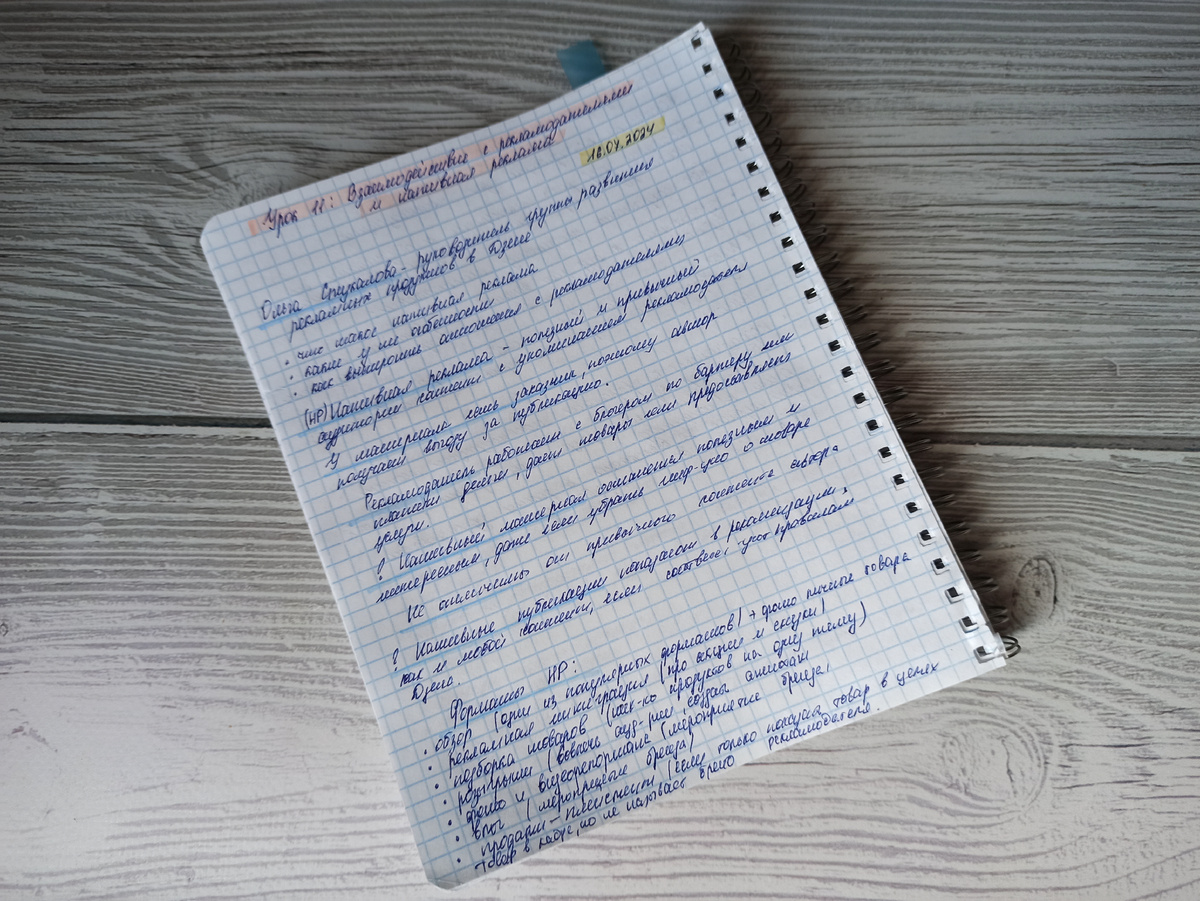 Урок 11: Взаимодействие с рекламодателями
и нативная реклама
16.04.2024
Ольга Стукалова - руководитель группы развития
рекламных продуктов в Дзене
· что такое нативная реклама
· какие у неё особенности
· как выстроить отношения с рекламодателями
(НР) Нативная реклама - полезный и привычный
аудитории контент с упоминанием рекламодателя
У материала есть заказчик, поэтому автор
получает выгоду за публикацию.
Рекламодатель работает с блогером по бартеру или
платит деньги, даёт товары или предоставляет
услуги.
! Нативный материал останется полезным и
интересным, даже если убрать инф-цию о товаре
Не отличить от привычного контента автора
! Нативные публикации попадают в рекомендации,
как и любой контент, если соответ. правилам
Дзена.
Форматы НР:
· обзор (один из популярных форматов) + фото личные товара
· рекламная интеграция (про акции и скидки)
· подборка товаров (неск-ко продуктов на одну тему)
· розыгрыши (вовлечь ауд-рию, создав ажиотаж)
· фото и видеорепортаж (мероприятие бренда)
· влог (мероприятие бренда)
· продакт-плейсмент (если только показать товар в целях
товар в кадре, но не называет бренд рекламодателя.